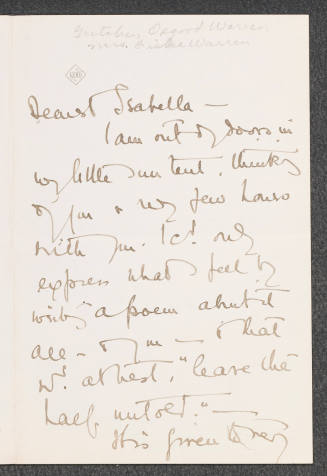 Gretchen Osgood Warren
Mrs. Fiske Warren
Dearest Isabella –
I am out of doors in
my little sun tent, thinking
of you & my few hours
with you. I cd. only
express what I feel by
writing a poem about it
all – & you – & that
wd. at best, "leave the
half untold." –
It is given to very